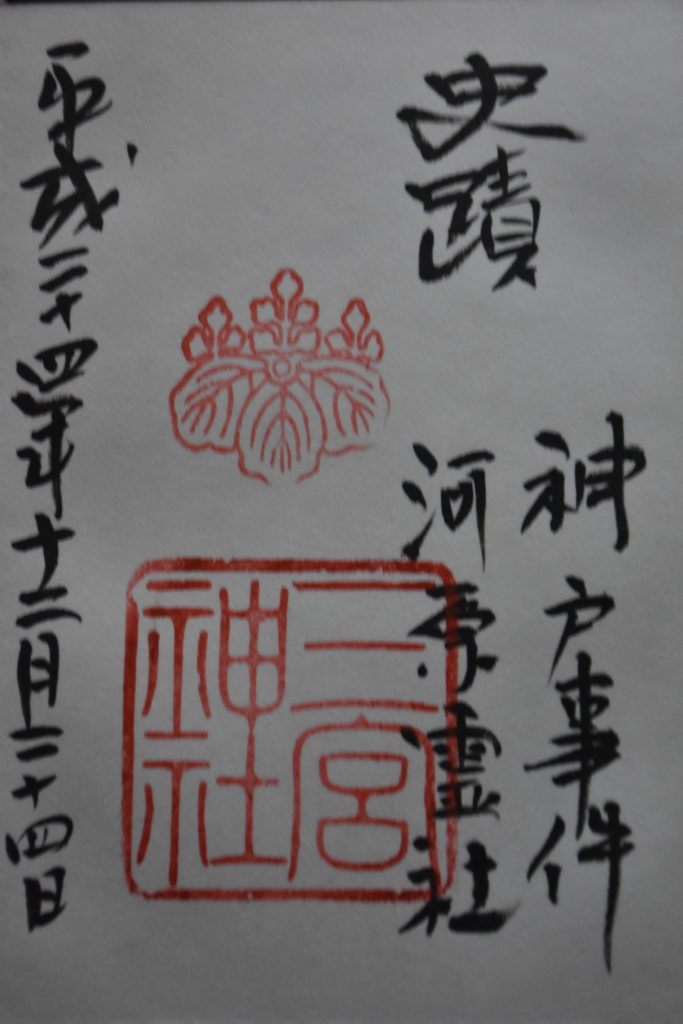 史蹟
神戸事件
河原霊社
三宮
神社
平成二十四年十二月二十四日